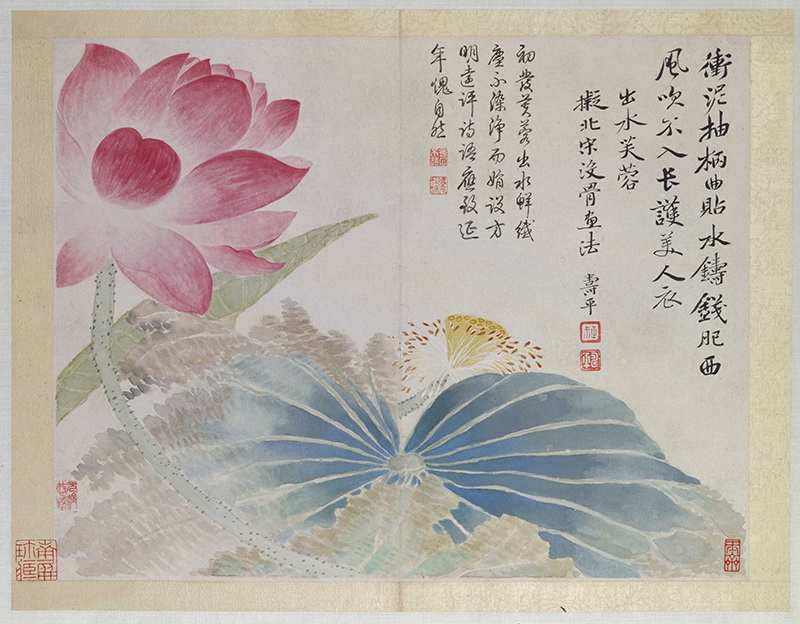 衝泥抽柄曲貼水鑄錢肥西
風吹不入長護美人衣
出水芙蓉
擬北宋沒骨画法
壽平
初發芙蓉出水鮮纖
塵不染淨而娟設方
明遠評詩語應致延
年愧自然